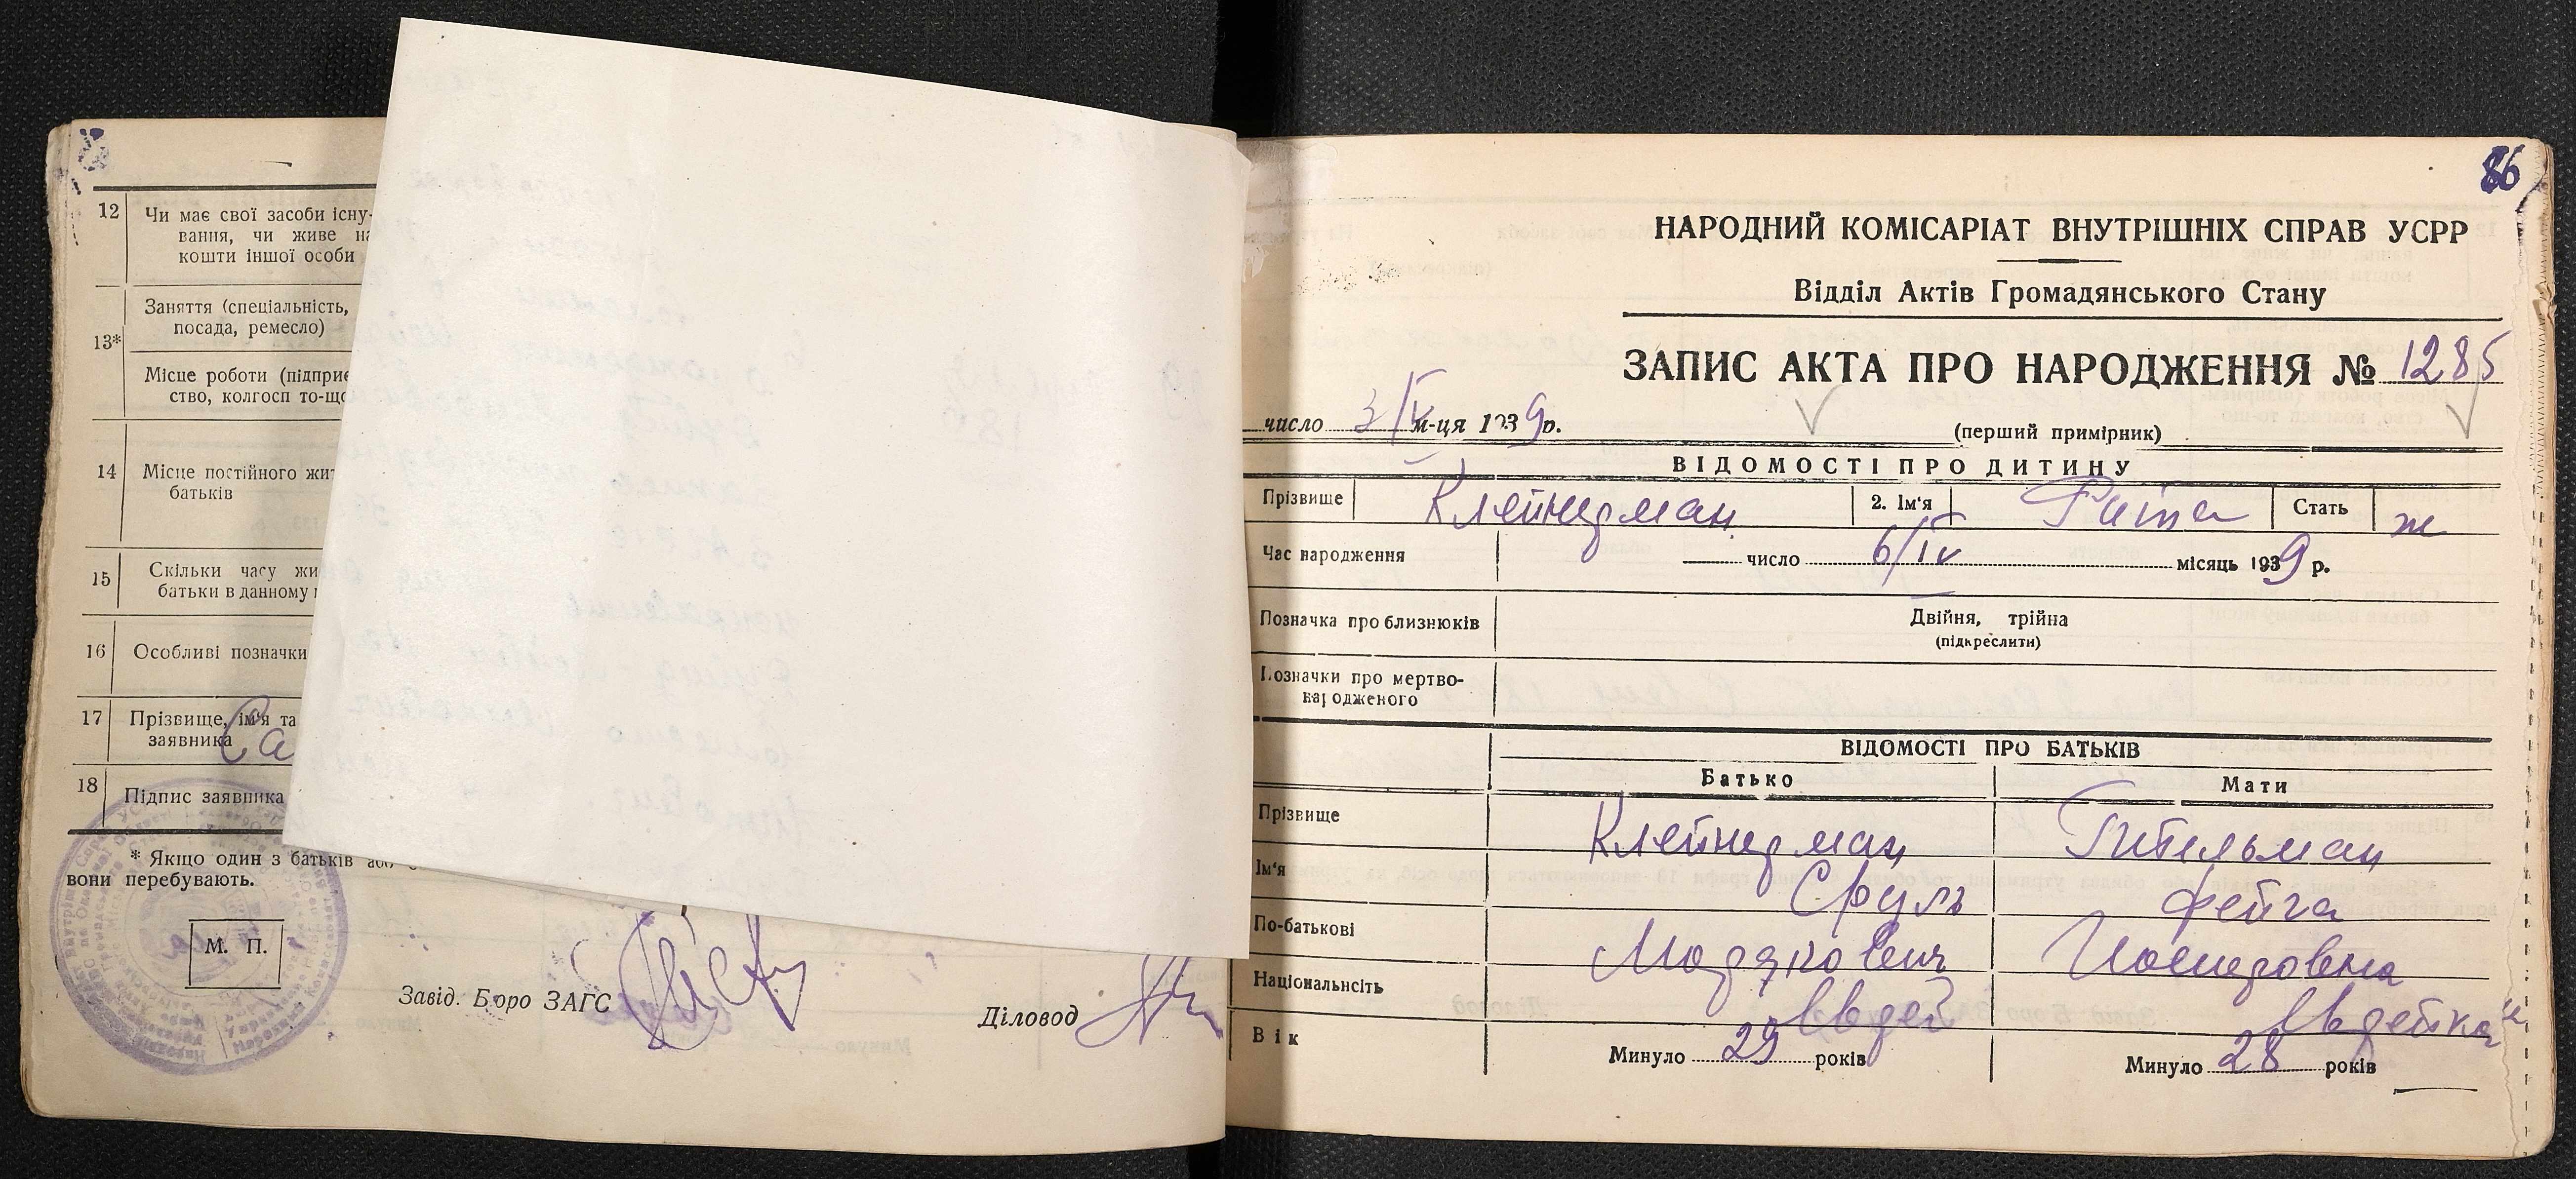 12
Чи має свої засоби існу-
вання, чи живе на
кошти іншої особи
13*
Заняття (спеціальність,
посада, ремесло)
Місце роботи (підприє
ство, колгосп то-що
14
Місце постійного жит
батьків
15
Скільки часу жи
батьки в данному
16
Особливі позначки
17
Прізвище, ім'я та
заявника
Са
18
Підпис заявника
* Якщо один з батьків або
вони перебувають.
М. П.
Завід. Бюро ЗАГС
Діловод
86
НАРОДНИЙ КОМІСАРІАТ ВНУТРІШНІХ СПРАВ УСРР
Відділ Актів Громадянського Стану
ЗАПИС АКТА ПРО НАРОДЖЕННЯ № 1285
число 3/V м-ця 1939 р.
(перший примірник)
ВІДОМОСТІ ПРО ДИТИНУ
Прізвище Клейнерман 2. Ім'я Рита Стать ж
Час народження число 6/IV місяць 1939 р.
Позначка про близнюків Двійня, трійна
(підкреслити)
Позначки про мертво-
народженого
ВІДОМОСТІ ПРО БАТЬКІВ
Батько Мати
Прізвище Клейнерман Гительман
Ім'я Сруль Фейга
По-батькові Мордкович Иосиповна
Національність Єврей Єврейка
Вік Минуло 29 років Минуло 28 років